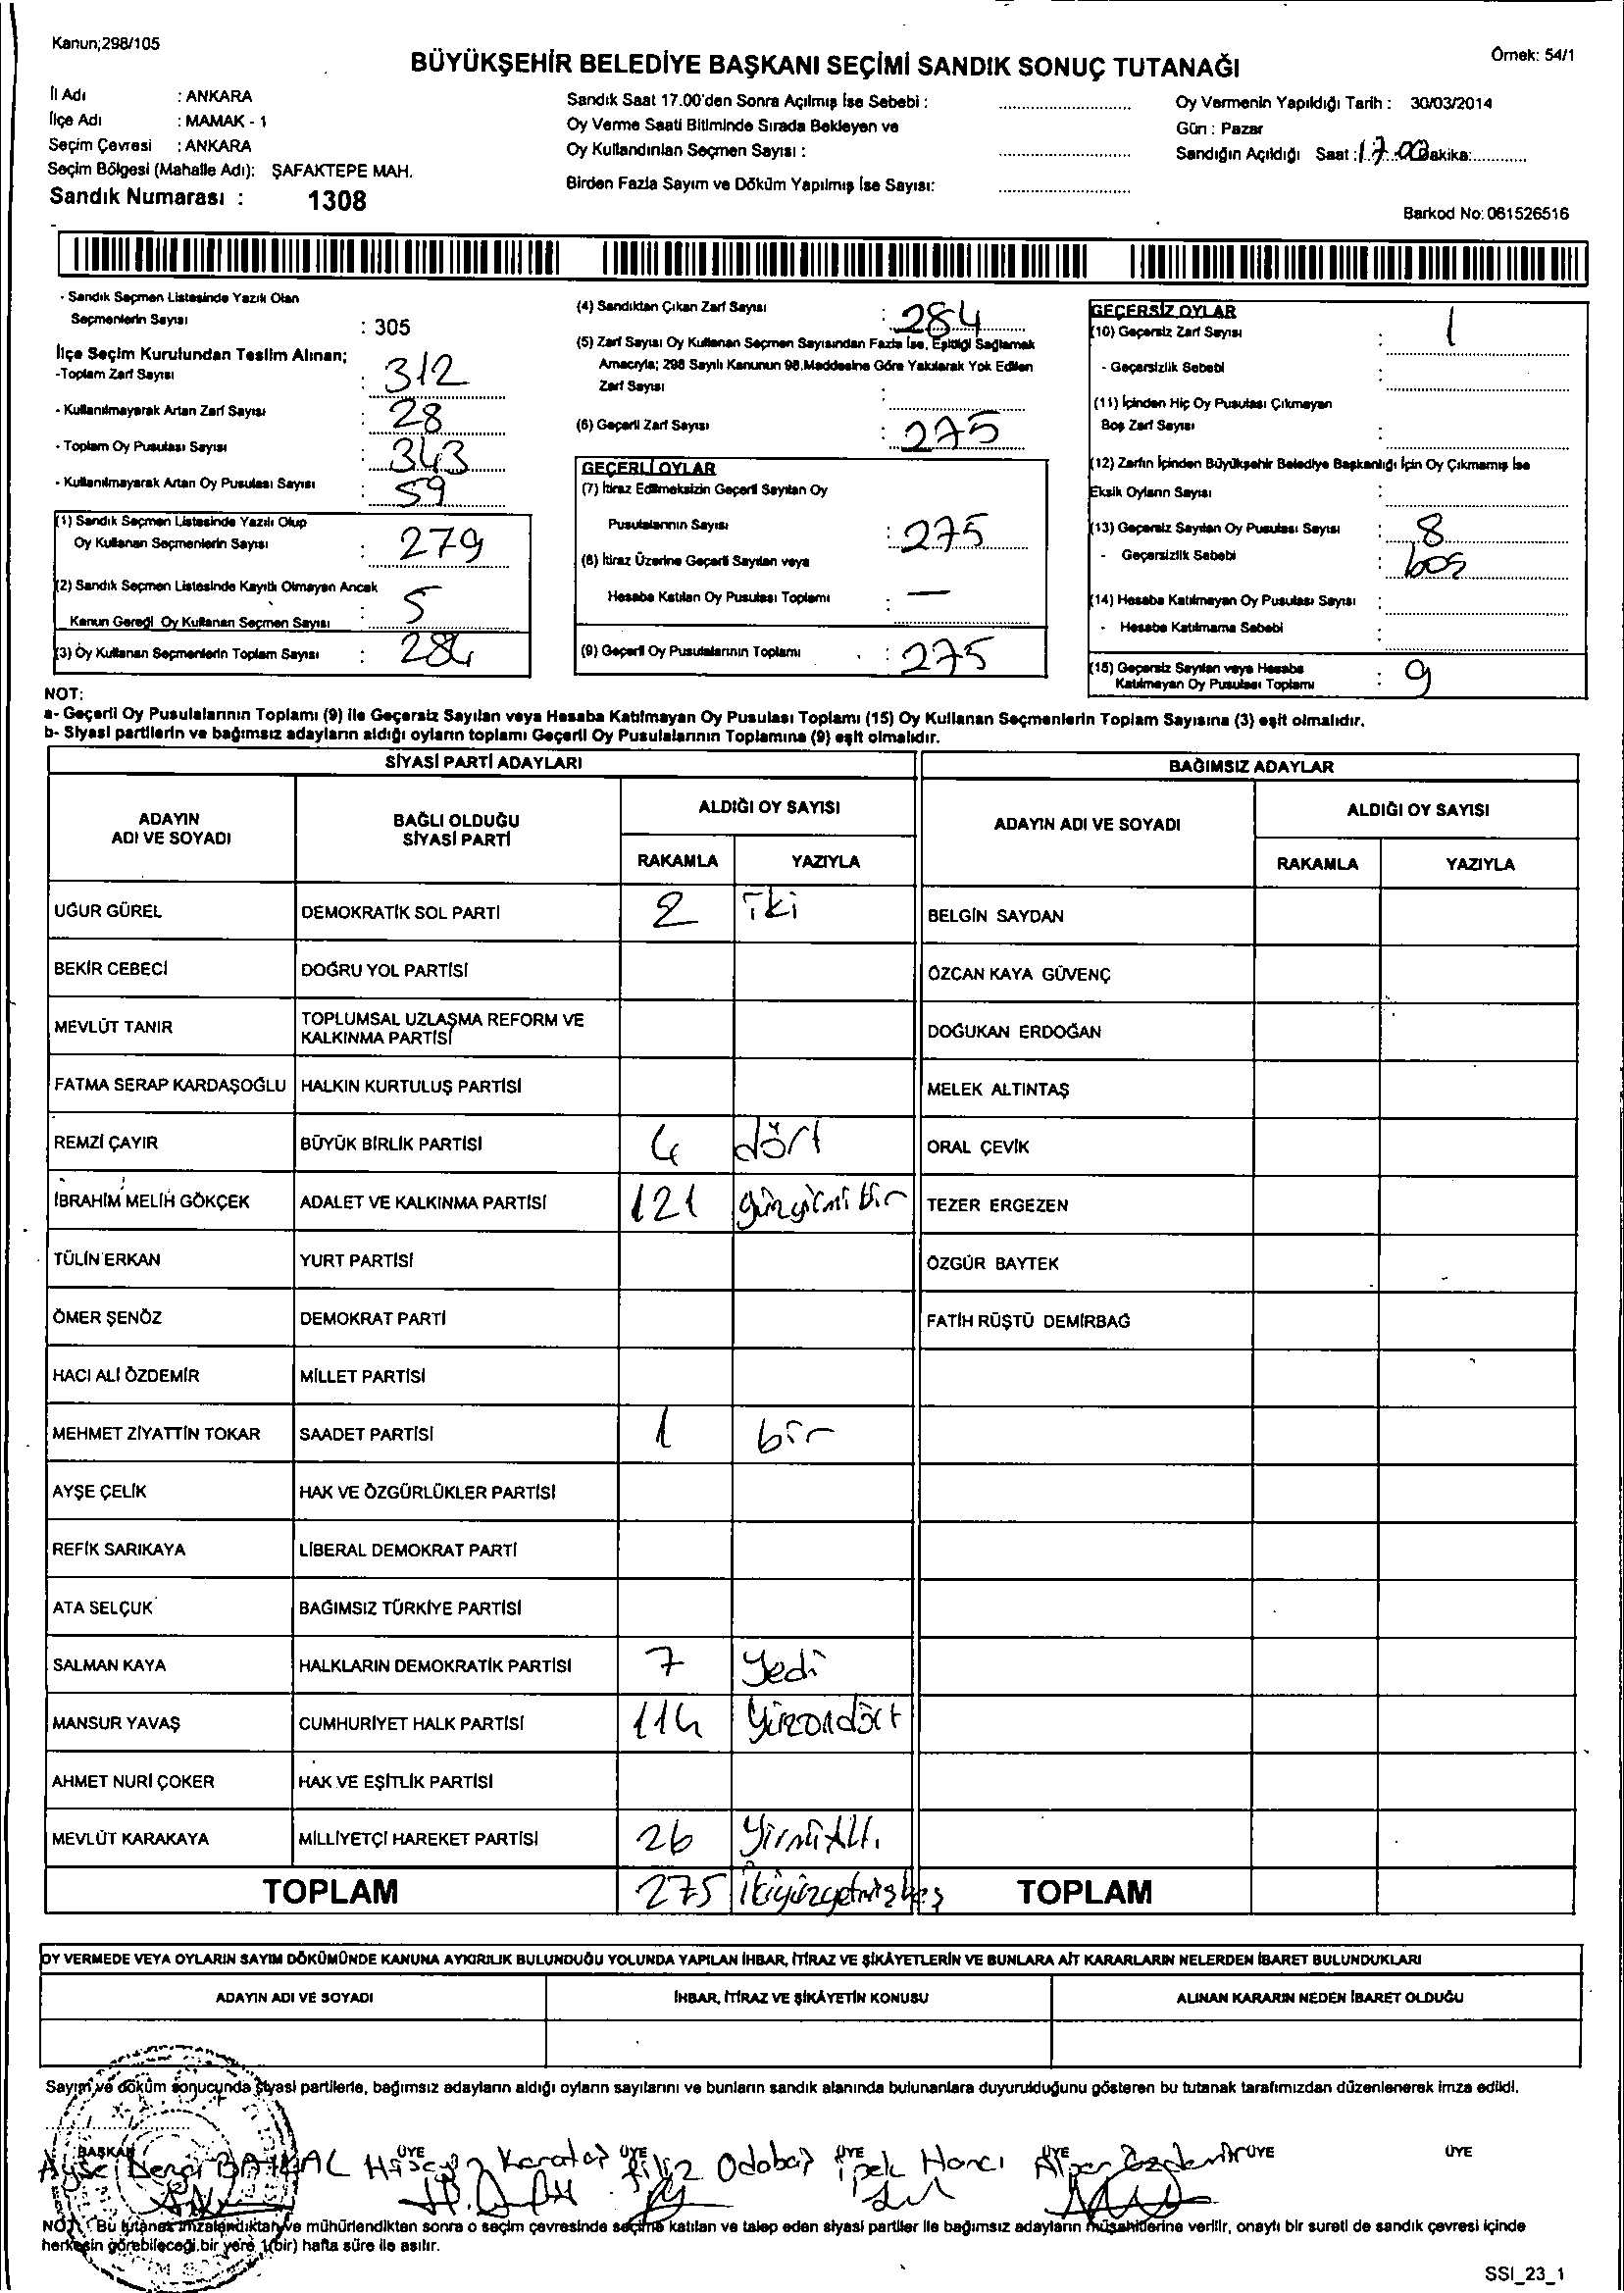 Kanun;298/105
BÜYÜKŞEHİR BELEDİYE BAŞKANI SEÇİMİ SANDIK SONUÇ TUTANAĞI
Örnek: 54/1
İl Adı : ANKARA
İlçe Adı : MAMAK - 1
Seçim Çevresi : ANKARA
Seçim Bölgesi (Mahalle Adı): ŞAFAKTEPE MAH.
Sandık Numarası : 1308
Sandık Saat 17.00'den Sonra Açılmış İse Sebebi :
Oy Verme Saati Bitiminde Sırada Bekleyen ve
Oy Kullandırılan Seçmen Sayısı :
Birden Fazla Sayım ve Döküm Yapılmış İse Sayısı:
Oy Vermenin Yapıldığı Tarih : 30/03/2014
Gün : Pazar
Sandığın Açıldığı Saat : 17.00 Dakika:
Barkod No: 061526516
- Sandık Seçmen Listesinde Yazılı Olan
Seçmenlerin Sayısı : 305
İlçe Seçim Kurulundan Teslim Alınan;
-Toplam Zarf Sayısı : 312
- Kullanılmayarak Artan Zarf Sayısı : 28
- Toplam Oy Pusulası Sayısı : 343
- Kullanılmayarak Artan Oy Pusulası Sayısı : 59
(1) Sandık Seçmen Listesinde Yazılı Olup
Oy Kullanan Seçmenlerin Sayısı : 279
(2) Sandık Seçmen Listesinde Kayıtlı Olmayan Ancak
Kanun Gereği Oy Kullanan Seçmen Sayısı : 5
(3) Oy Kullanan Seçmenlerin Toplam Sayısı : 284
(4) Sandıktan Çıkan Zarf Sayısı : 284
(5) Zarf Sayısı Oy Kullanan Seçmen Sayısından Fazla İse, Eşitliği Sağlamak
Amacıyla; 298 Sayılı Kanunun 98.Maddesine Göre Yakılarak Yok Edilen
Zarf Sayısı :
(6) Geçerli Zarf Sayısı : 275
GEÇERLİ OYLAR
(7) İtiraz Edilmeksizin Geçerli Sayılan Oy
Pusulalarının Sayısı : 275
(8) İtiraz Üzerine Geçerli Sayılan veya
Hesaba Katılan Oy Pusulası Toplamı : —
(9) Geçerli Oy Pusulalarının Toplamı : 275
GEÇERSİZ OYLAR
(10) Geçersiz Zarf Sayısı : 1
- Geçersizlik Sebebi :
(11) İçinden Hiç Oy Pusulası Çıkmayan
Boş Zarf Sayısı :
(12) Zarfın İçinden Büyükşehir Belediye Başkanlığı İçin Oy Çıkmamış İse
Eksik Oyların Sayısı :
(13) Geçersiz Sayılan Oy Pusulası Sayısı : 8
- Geçersizlik Sebebi : boş
(14) Hesaba Katılmayan Oy Pusulası Sayısı :
- Hesaba Katılmama Sebebi :
(15) Geçersiz Sayılan veya Hesaba
Katılmayan Oy Pusulası Toplamı : 9
NOT:
a- Geçerli Oy Pusulalarının Toplamı (9) ile Geçersiz Sayılan veya Hesaba Katılmayan Oy Pusulası Toplamı (15) Oy Kullanan Seçmenlerin Toplam Sayısına (3) eşit olmalıdır.
b- Siyasi partilerin ve bağımsız adayların aldığı oyların toplamı Geçerli Oy Pusulalarının Toplamına (9) eşit olmalıdır.
SİYASİ PARTİ ADAYLARI
BAĞIMSIZ ADAYLAR
ADAYIN ADI VE SOYADI
BAĞLI OLDUĞU SİYASİ PARTİ
ALDIĞI OY SAYISI
RAKAMLA YAZIYLA
ADAYIN ADI VE SOYADI
ALDIĞI OY SAYISI
RAKAMLA YAZIYLA
UĞUR GÜREL DEMOKRATİK SOL PARTİ 2 iki BELGİN SAYDAN
BEKİR CEBECİ DOĞRU YOL PARTİSİ ÖZCAN KAYA GÜVENÇ
MEVLÜT TANIR TOPLUMSAL UZLAŞMA REFORM VE KALKINMA PARTİSİ DOĞUKAN ERDOĞAN
FATMA SERAP KARDAŞOĞLU HALKIN KURTULUŞ PARTİSİ MELEK ALTINTAŞ
REMZİ ÇAYIR BÜYÜK BİRLİK PARTİSİ 4 dört ORAL ÇEVİK
İBRAHİM MELİH GÖKÇEK ADALET VE KALKINMA PARTİSİ 121 yüzyirmi bir TEZER ERGEZEN
TÜLİN ERKAN YURT PARTİSİ ÖZGÜR BAYTEK
ÖMER ŞENÖZ DEMOKRAT PARTİ FATİH RÜŞTÜ DEMİRBAĞ
HACI ALİ ÖZDEMİR MİLLET PARTİSİ
MEHMET ZİYATTİN TOKAR SAADET PARTİSİ 1 bir
AYŞE ÇELİK HAK VE ÖZGÜRLÜKLER PARTİSİ
REFİK SARIKAYA LİBERAL DEMOKRAT PARTİ
ATA SELÇUK BAĞIMSIZ TÜRKİYE PARTİSİ
SALMAN KAYA HALKLARIN DEMOKRATİK PARTİSİ 7 Yedi
MANSUR YAVAŞ CUMHURİYET HALK PARTİSİ 114 Yüzondört
AHMET NURİ ÇOKER HAK VE EŞİTLİK PARTİSİ
MEVLÜT KARAKAYA MİLLİYETÇİ HAREKET PARTİSİ 26 Yirmialtı
TOPLAM 275 İkiyüzyetmişbeş TOPLAM
OY VERMEDE VEYA OYLARIN SAYIM DÖKÜMÜNDE KANUNA AYKIRILIK BULUNDUĞU YOLUNDA YAPILAN İHBAR, İTİRAZ VE ŞİKÂYETLERİN VE BUNLARA AİT KARARLARIN NELERDEN İBARET BULUNDUKLARI
ADAYIN ADI VE SOYADI İHBAR, İTİRAZ VE ŞİKÂYETİN KONUSU ALINAN KARARIN NEDEN İBARET OLDUĞU
Sayım ve döküm sonucunda siyasi partilerle, bağımsız adayların aldığı oyların sayılarını ve bunların sandık alanında bulunanlara duyurulduğunu gösteren bu tutanak tarafımızdan düzenlenerek imza edildi.
BAŞKAN ÜYE ÜYE ÜYE ÜYE ÜYE ÜYE
Ayşe Hüseyin Karataş Filiz Odabaş İpek Hancı Alper Özdemir
NOT: Bu tutanak imzalandıktan ve mühürlendikten sonra o seçim çevresinde seçime katılan ve talep eden siyasi partiler ile bağımsız adayların müşahitlerine verilir, onaylı bir sureti de sandık çevresi içinde
herkesin görebileceği bir yere 1(bir) hafta süre ile asılır.
SSI_23_1